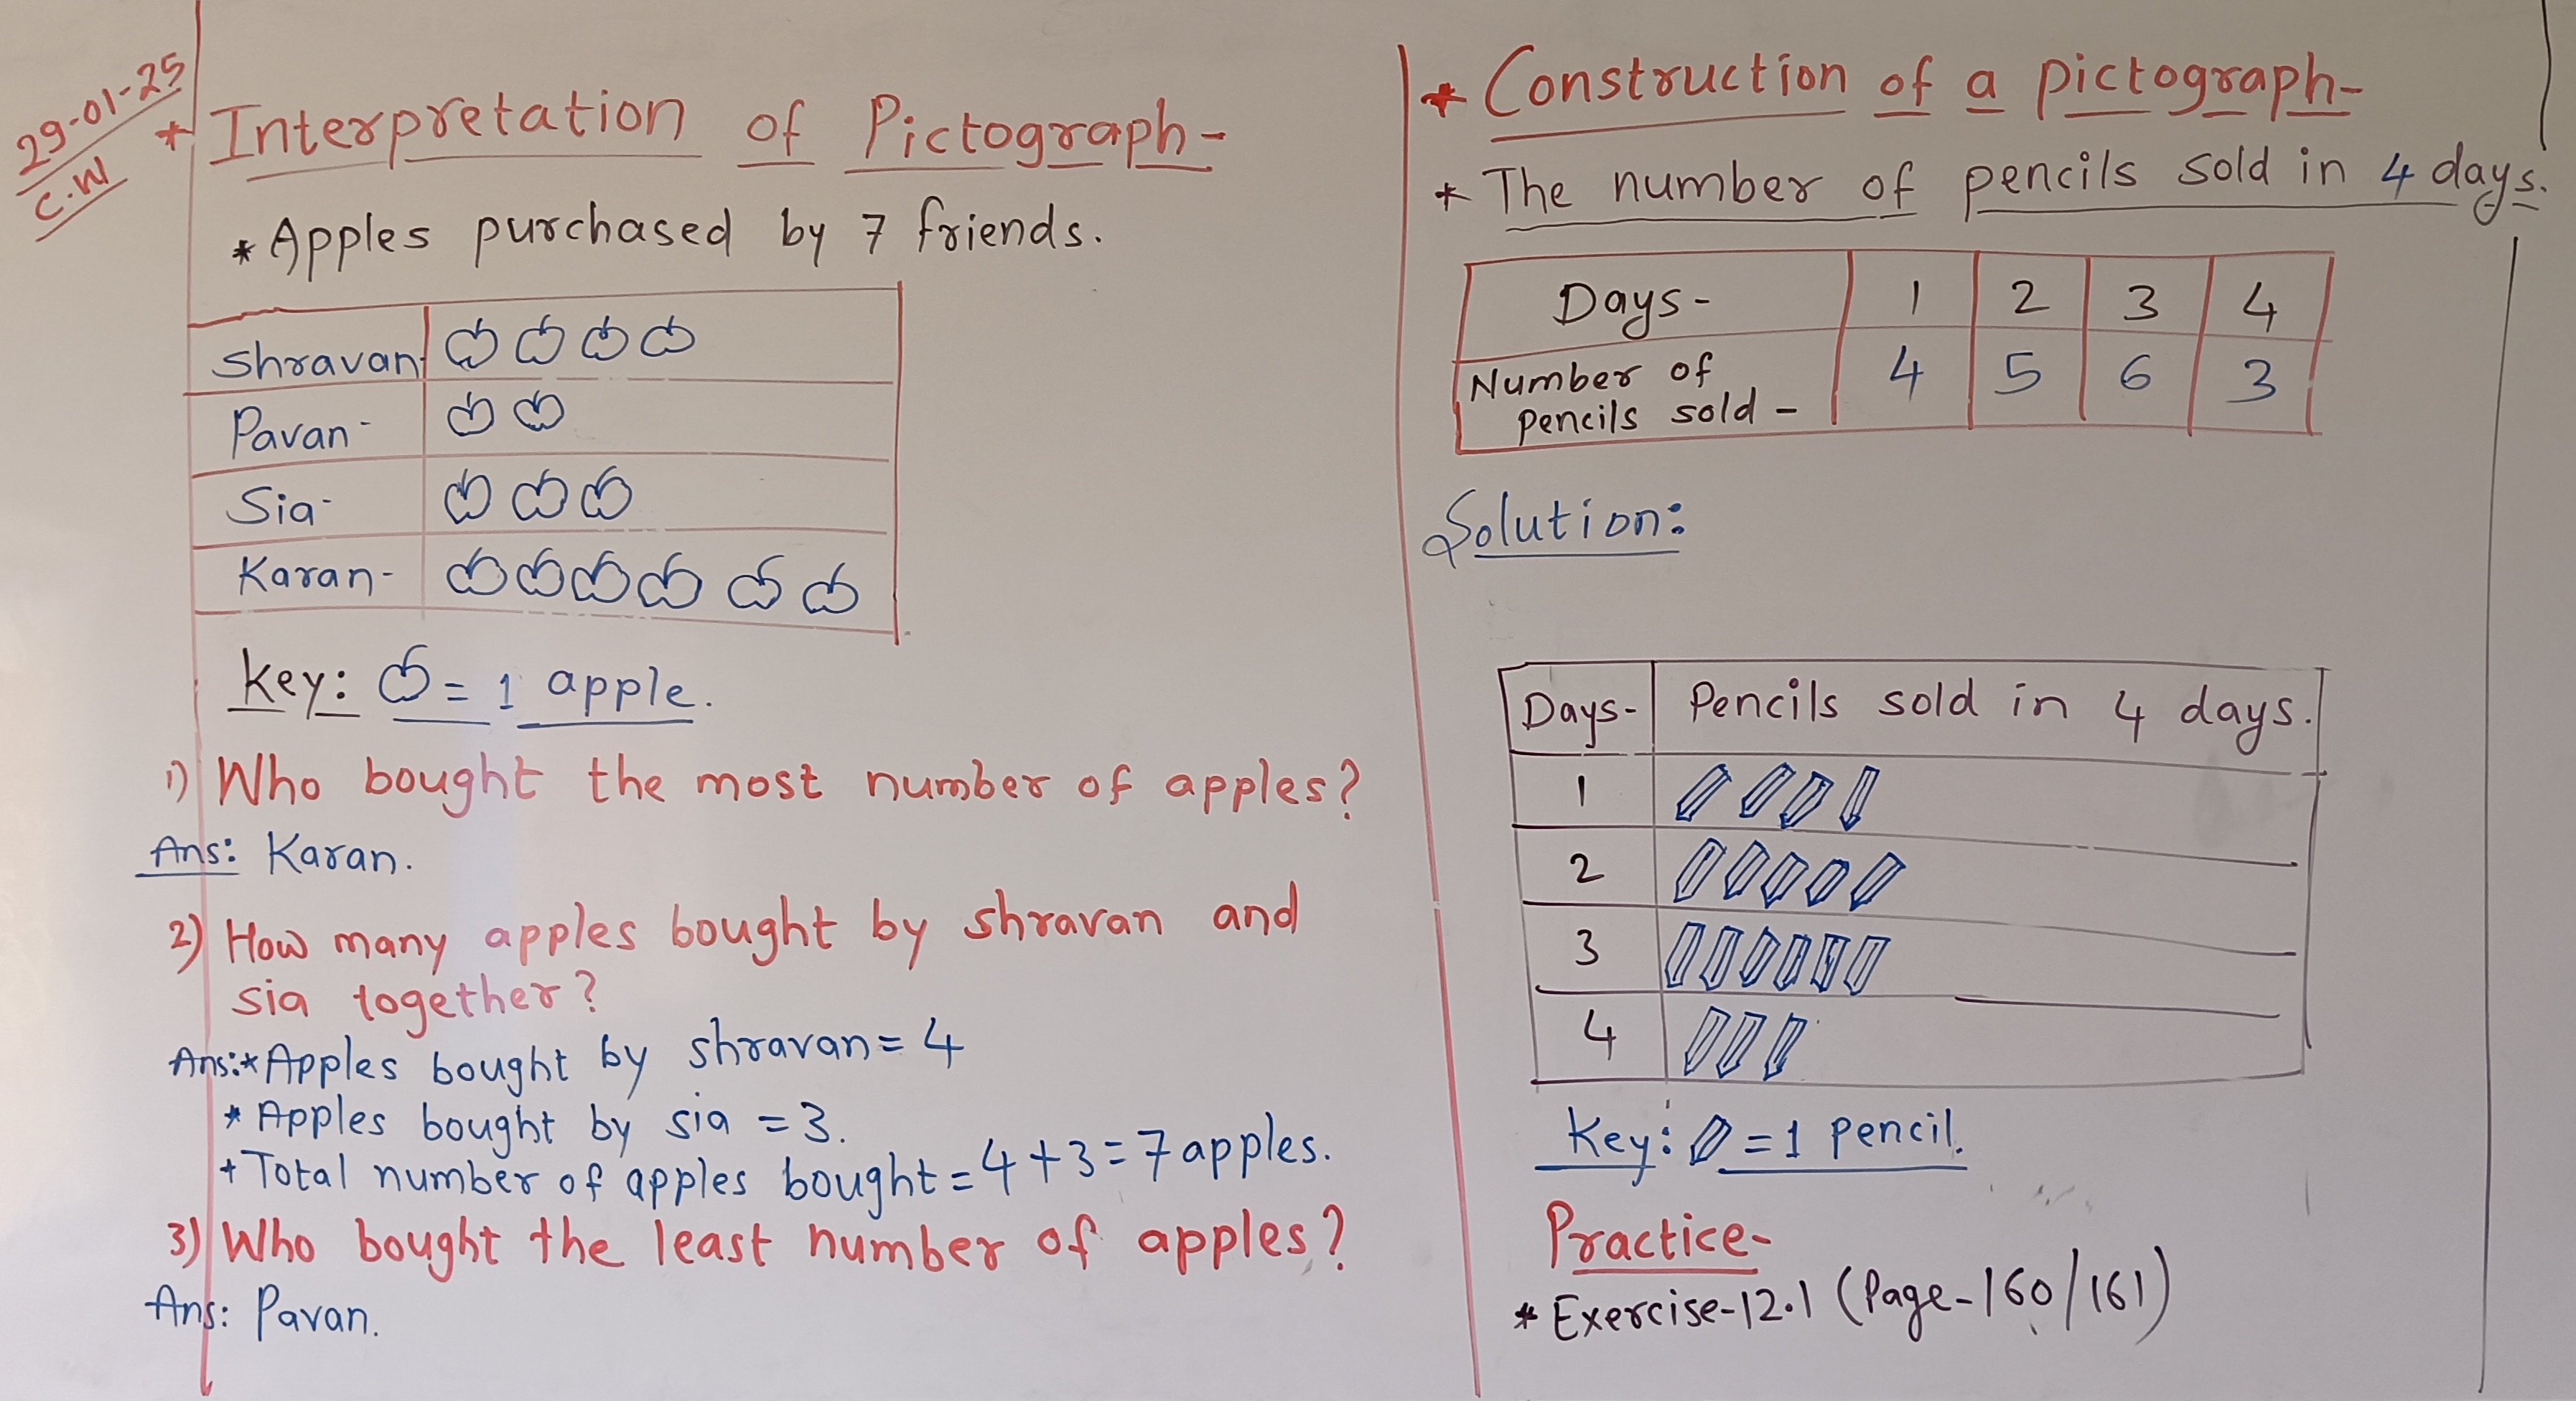 29-01-25
C.W
* Interpretation of Pictograph-
* Apples purchased by 7 friends.
Shravan-
Pavan-
Sia-
Karan-
Key: = 1 apple.
1) Who bought the most number of apples?
Ans: Karan.
2) How many apples bought by shravan and
sia together?
Ans:* Apples bought by shravan = 4
* Apples bought by sia = 3.
* Total number of apples bought = 4 + 3 = 7 apples.
3) Who bought the least number of apples?
Ans: Pavan.
* Construction of a pictograph-
* The number of pencils sold in 4 days.
Days- 1 2 3 4
Number of
pencils sold - 4 5 6 3
Solution:
Days- Pencils sold in 4 days.
1
2
3
4
Key: = 1 pencil.
Practice-
* Exercise-12.1 (Page-160/161)